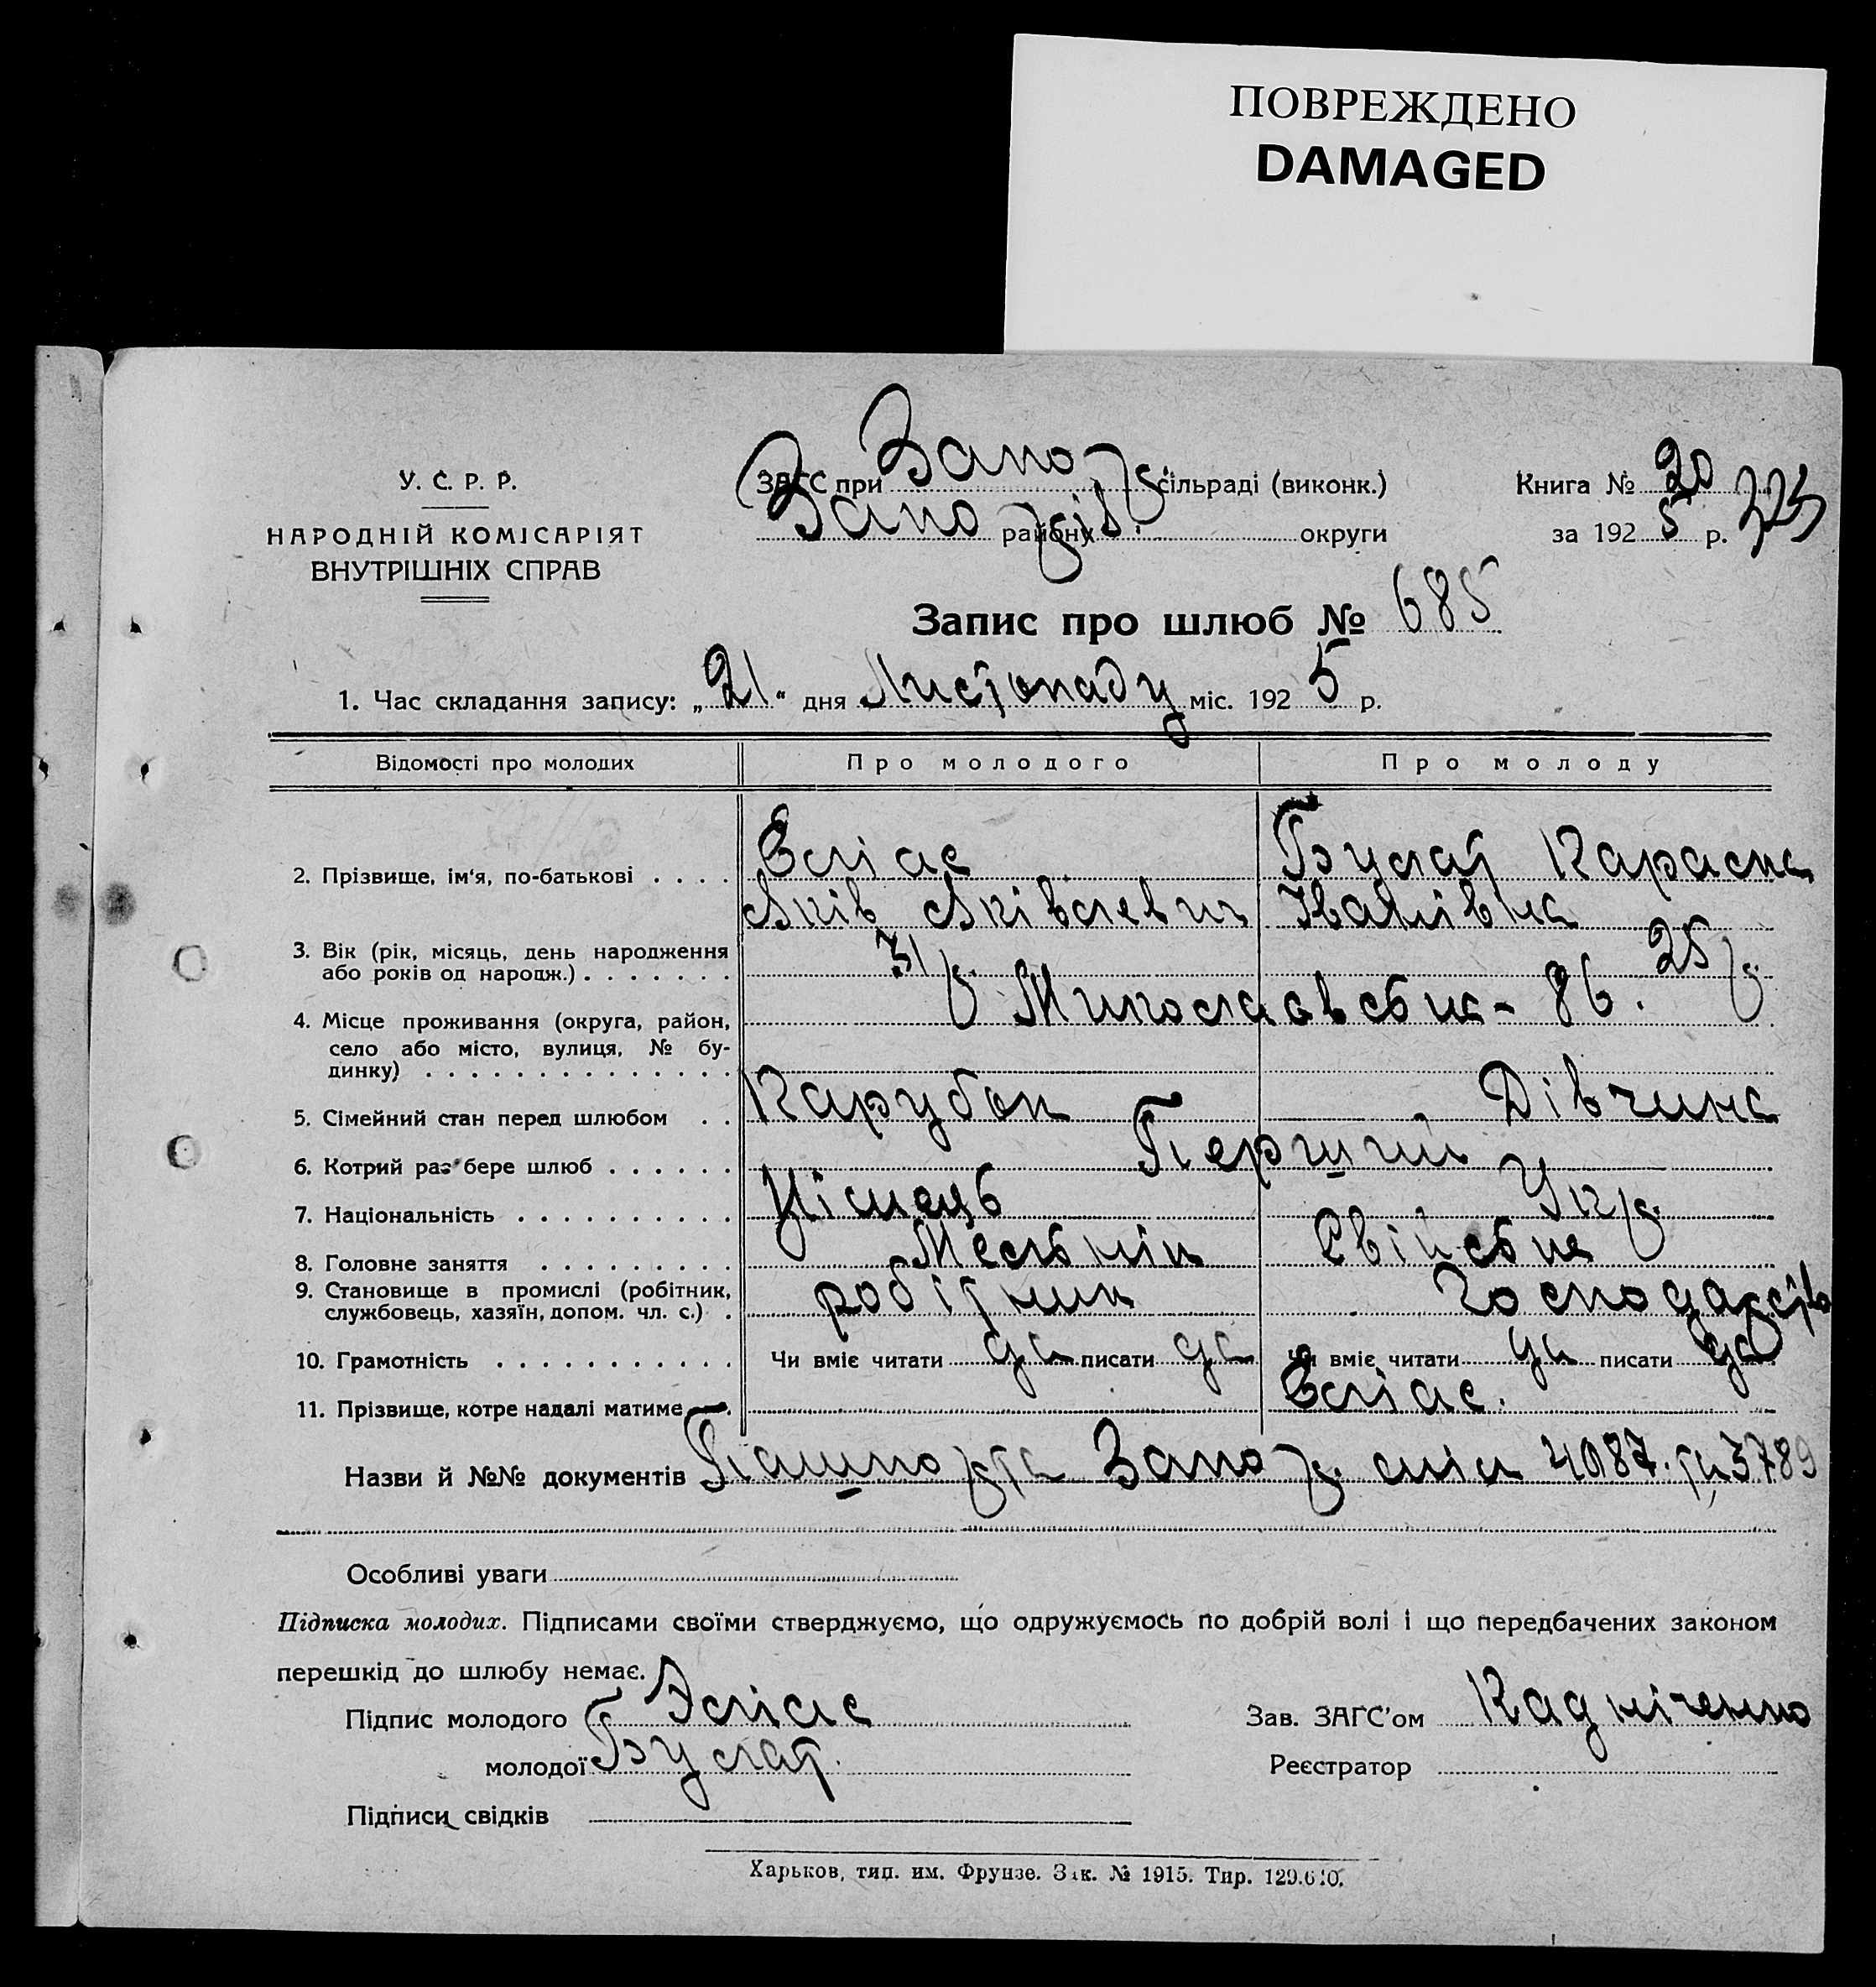 ПОВРЕЖДЕНО
DAMAGED
У. С. Р. Р.
НАРОДНІЙ КОМІСАРІЯТ
ВНУТРІШНІХ СПРАВ
ЗАГС при Запор. сільраді (виконк.)
Запоріз. району округи
Книга № 20
за 1925 р.
Запис про шлюб № 685
1. Час складання запису: „21“ дня Листопаду міс. 1925 р.
Відомості про молодих Про молодого Про молоду
2. Прізвище, ім‘я, по-батькові . . . . Еліас Булат Параска
Яків Яківлевич Іванівна
3. Вік (рік, місяць, день народження
або років од народж.) . . . . . . . 31 р. 25 р.
4. Місце проживання (округа, район,
село або місто, вулиця, № бу-
динку) . . . . . . . . . . . . . . . Миколаавська - 86.
5. Сімейний стан перед шлюбом . . Парубок Дівчина
6. Котрий раз бере шлюб . . . . . . Перший
7. Національність . . . . . . . . . . Німець Укр.
8. Головне заняття . . . . . . . . . Мельник Свійське
9. Становище в промислі (робітник,
службовець, хазяїн, допом. чл. с.) . робітник Господарство
10. Грамотність . . . . . . . . . . . Чи вміє читати да писати да Чи вміє читати да писати да
11. Прізвище, котре надалі матиме Еліас.
Назви й №№ документів Пашпорта Запор. міл 4087. та 3789
Особливі уваги
Підписка молодих. Підписами своїми стверджуємо, що одружуємось по добрій волі і що передбачених законом
перешкід до шлюбу немає.
Підпис молодого Эліас
молодої Булат.
Зав. ЗАГС’ом Кадніченко
Реєстратор
Підписи свідків
Харьков, тип. им. Фрунзе. Зак. № 1915. Тир. 129.600.